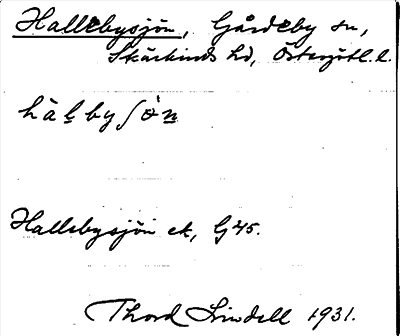 Hallebysjön, Gårdeby sn,
Skärkinds hd, Östergötl. l.
hàḷbyʃö̀ṉ
Hallebysjön ek, G 45.
Thord Lindell 1931.